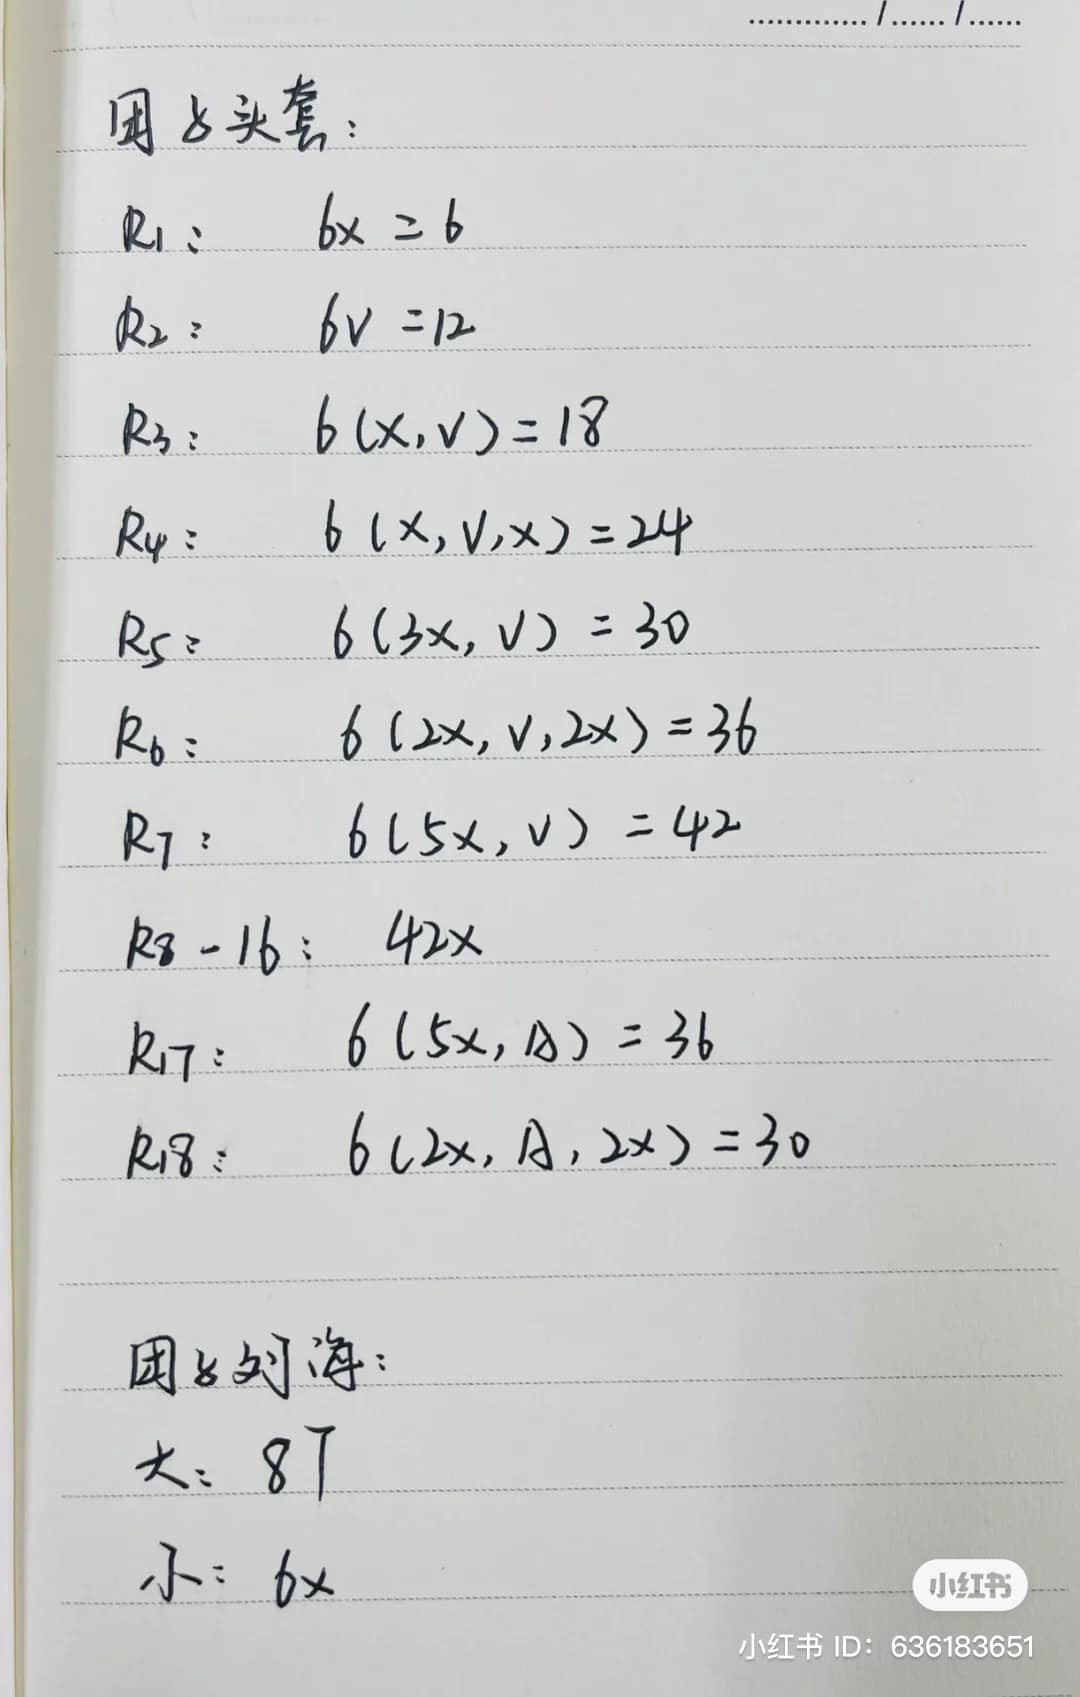 ............. / ...... / ......
团团头套：
R1： 6x = 6
R2： 6V = 12
R3： 6(x, v) = 18
R4： 6(x, v, x) = 24
R5： 6(3x, v) = 30
R6： 6(2x, v, 2x) = 36
R7： 6(5x, v) = 42
R8-16： 42x
R17： 6(5x, A) = 36
R18： 6(2x, A, 2x) = 30
团团刘海：
大：8T
小：6x
小红书
小红书 ID：636183651